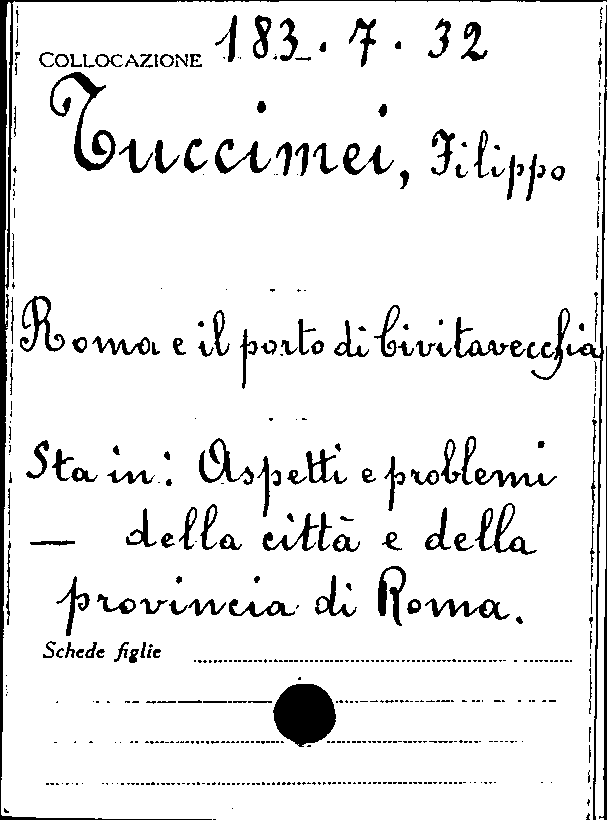 COLLOCAZIONE 183.7.32
Tuccimei, Filippo
Roma e il porto di Civitavecchia
Sta in: Aspetti e problemi
— della città e della
provincia di Roma.
Schede figlie